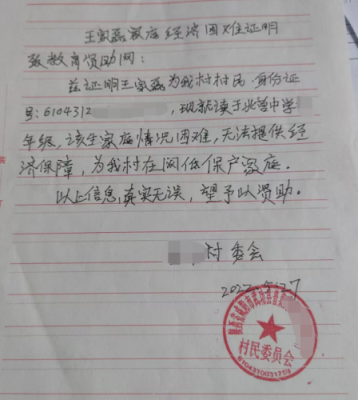 王家磊家庭经济困难证明
致教育资助网：
兹证明王家磊为我村村民 身份证
号：6104312 ，现就读于 中学
年级，该生家庭情况困难，无法提供经
济保障，为我村在网低保户家庭．
以上信息真实无误，望予以资助。
村委会
2022.5.27
村民委员会